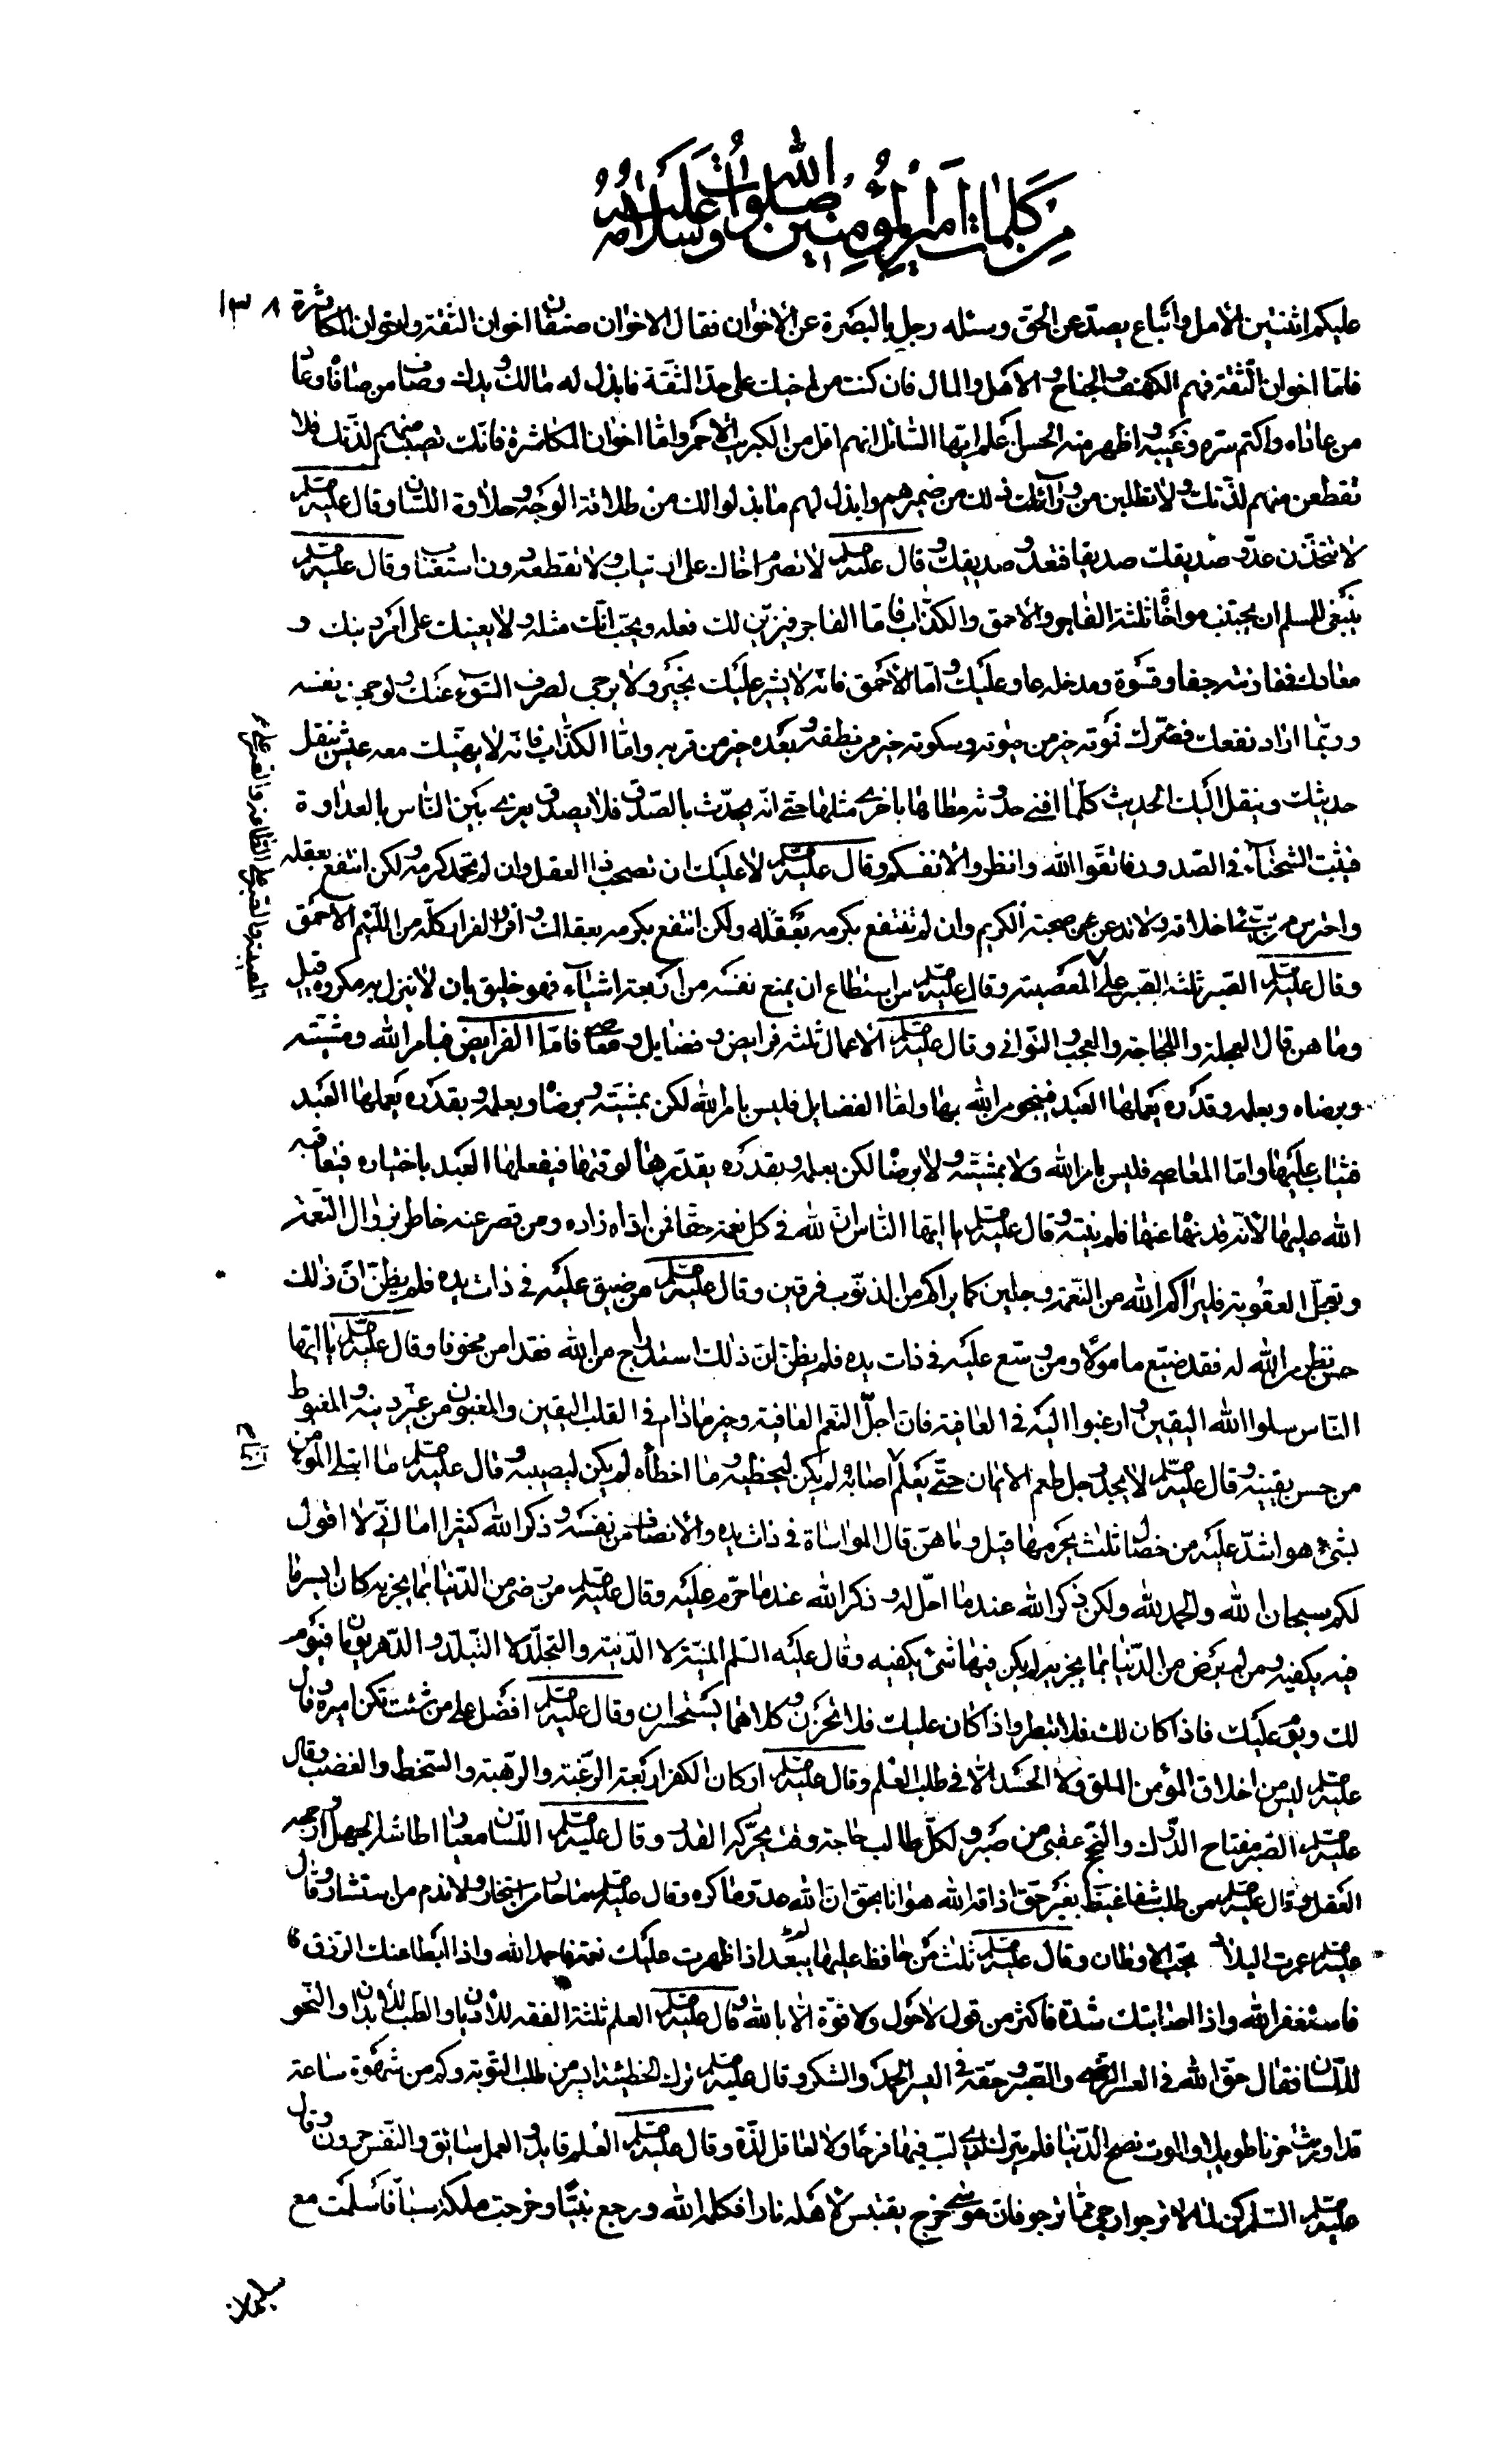 من كلمات امير المؤمنين صلوات الله عليه وسلامه
١٣٨
عليكم اثنتين الامل واتباع يصد عن الحق وسئله رجل بالبصرة عن الاخوان فقال الاخوان صنفان اخوان الثقة واخوان المكاشرة
فامّا اخوان الثقة فهم الكهف والجناح والاهل والمال فان كنت من اخيك على حد الثقة فابذل له مالك وبدنك وصاف من صافاه وعاد
من عاداه واكتم سره وعيبه واظهر منه الحسن اعلم ايّها السائل انهم اقل من الكبريت الاحمر وامّا اخوان المكاشرة فانك تصيب منهم لذتك فلا
تقطعن منهم لذتك ولا تطلبن من وراء ذلك من ضميرهم وابذل لهم ما بذلوا لك من طلاقة الوجه وحلاوة اللسان وقال عليه السلم
لا تتخذن عدو صديقك صديقا فتعدو صديقك وقال عليه السلم لا تصرم اخاك على ارتياب ولا تقطعه دون استعتاب وقال عليه السلم
ينبغي للمسلم ان يجتنب مواخاة ثلثة الفاجر والاحمق والكذاب فامّا الفاجر فيزيّن لك فعله ويحب انك مثله ولا يعينك على امر دينك و
معادك فمقارنته جفا وقسوة ومدخله عار عليك وامّا الاحمق فانه لا يشير عليك بخير ولا يرجى لصرف السوء عنك ولو جهد نفسه
وربّما اراد نفعك فضرّك فموته خير من حيوته وسكوته خير من نطقه وبعده خير من قربه وامّا الكذاب فانه لا يهنيك معه عيش ينقل
حديثك وينقل اليك الحديث كلّما افنى احدوثة مطاها باخرى مثلها حتى انه يحدث بالصدق فلا يصدق يغري بين الناس بالعداوة
فيثبت الشحناء في الصدور فاتقوا الله وانظروا لانفسكم وقال عليه السلم لا عليك ان تصحب ذا العقل وان لم تحمد كرمه ولكن انتفع بعقله
واحترس من سيّئ اخلاقه ولا تدعن صحبة الكريم وان لم تنتفع بكرمه بعقله ولكن انتفع بكرمه بعقلك وافرر الفرار كله من اللئيم الاحمق
وقال عليه السلم الصبر ثلثة الصبر على المعصية وقال عليه السلم من استطاع ان يمنع نفسه من اربعة اشياء فهو خليق بان لا ينزل به مكروه قيل
وما هن قال العجلة واللجاجة والعجب والتواني وقال عليه السلم الاعمال ثلثة فرايض وفضايل ومعاصي فامّا الفرايض فبامر الله ومشيته
وبرضاه وبعلمه وقدره يعملها العبد فينجو من الله بها وامّا الفضايل فليس بامر الله لكن بمشيته وبرضاه وبعلمه وبقدره يعملها العبد
فيثاب عليها وامّا المعاصي فليس بامر الله ولا بمشيته ولا برضاه لكن بعلمه وبقدره يقدرها لوقتها فيفعلها العبد باختياره فيعاقبه
الله عليها لانه قد نهاه عنها فلم ينته وقال عليه السلم يا ايها الناس ان لله في كل نعمة حقا فمن ادّاه زاده ومن قصر عنه خاطر بزوال النعمة
وتعجل العقوبة فليراكم الله من النعمة وجلين كما يراكم من الذنوب فرقين وقال عليه السلم من ضيق عليه في ذات يده فلم يظن ان ذلك
حسن نظر من الله له فقد ضيّع مامولا ومن وسّع عليه في ذات يده فلم يظن ان ذلك استدراج من الله فقد امن مخوفا وقال عليه السلم يا ايها
الناس سلوا الله اليقين وارغبوا اليه في العافية فان اجل النعم العافية وخير ما دام في القلب اليقين والمغبون من غبن دينه والمغبوط
من حسن يقينه وقال عليه السلم لا يجد رجل طعم الايمان حتى يعلم ان ما اصابه لم يكن ليخطيه وما اخطأه لم يكن ليصيبه وقال عليه السلم ما ابتلى المؤمن
بشيء هو اشد عليه من خصال ثلث يحرمها قيل وما هن قال المواساة في ذات يده والانصاف من نفسه وذكر الله كثيرا اما اني لا اقول
لكم سبحان الله والحمد لله ولكن ذكر الله عند ما احل له وذكر الله عند ما حرّم عليه وقال عليه السلم من رضي من الدنيا بما يجزيه كان ايسر ما
فيه يكفيه ومن لم يرض من الدنيا بما يجزيه لم يكن فيها شيء يكفيه وقال عليه السلم المنية لا الدنية والتجلد لا التبلد والدهر يومان فيوم
لك ويوم عليك فاذا كان لك فلا تبطر واذا كان عليك فلا تحزن وكلاهما وقال عليه السلم افضل على من شئت تكن اميره وقال
عليه السلم ليس من اخلاق المؤمن الملق ولا الحسد الا في طلب العلم وقال عليه السلم اركان الكفر اربعة الرغبة والرهبة والسخط والغضب وقال
عليه السلم الصبر مفتاح الدرك والنجح عقبى من صبر ولكل طالب حاجة وقت يحركه القدر وقال عليه السلم اللسان معيار اطاشه الجهل وارجحه
العقل وقال عليه السلم من طلب شفا غيظ بغير حق اذاقه الله هوانا بحق ان الله عدو ما كره وقال عليه السلم ما حار من استخار ولا ندم من استشار وقال
عليه السلم عمرت البلدان بحب الاوطان وقال عليه السلم ثلث من حافظ عليها سعد اذا ظهرت عليك نعمة فاحمد الله واذا ابطأ عنك الرزق
فاستغفر الله واذا اصابتك شدة فاكثر من قول لا حول ولا قوة الا بالله وقال عليه السلم العلم ثلثة الفقه للاديان والطب للابدان والنحو
للّسان فقال حق الله في العسر الرضى والصبر وحقه في اليسر الحمد والشكر وقال عليه السلم ترك الخطيئة ايسر من طلب التوبة وكم من شهوة ساعة
قد اورثت حزنا طويلا والموت فضح الدنيا فلم يترك لذي لبّ فيها فرحا ولا لعاقل لذة وقال عليه السلم العلم قايد والعمل سايق والنفس حرون وقال
عليه السلم كن لما لا ترجو ارجى مما ترجو فان موسى خرج يقتبس لاهله نارا فكلمه الله ورجع نبيّا وخرجت ملكة سبأ فاسلمت مع
سليمان